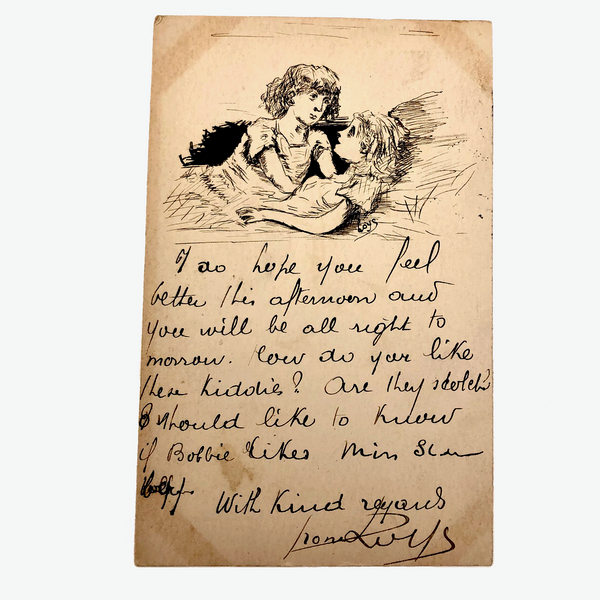 Loys
I do hope you feel
better this afternoon and
you will be all right to
morrow. How do you like
these kiddies? Are they
I should like to know
if Bobbie likes Miss
With Kind regards
from Loys